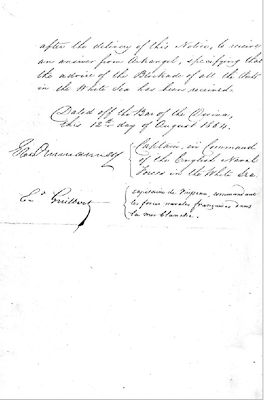 after the delivery of this Notice, to receive
an answer from Arkangel, specifying that
the advice of the Blockade of all the
in the White Sea has been received.
Dated off the Bar of the Dwina,
this 12th day of August 1854.
Captain, in Command
of the English Naval
Forces in the White Sea.
Ed. Guilbert
capitaine de vaisseau, commandant
les forces navales françaises dans
la mer blanche.